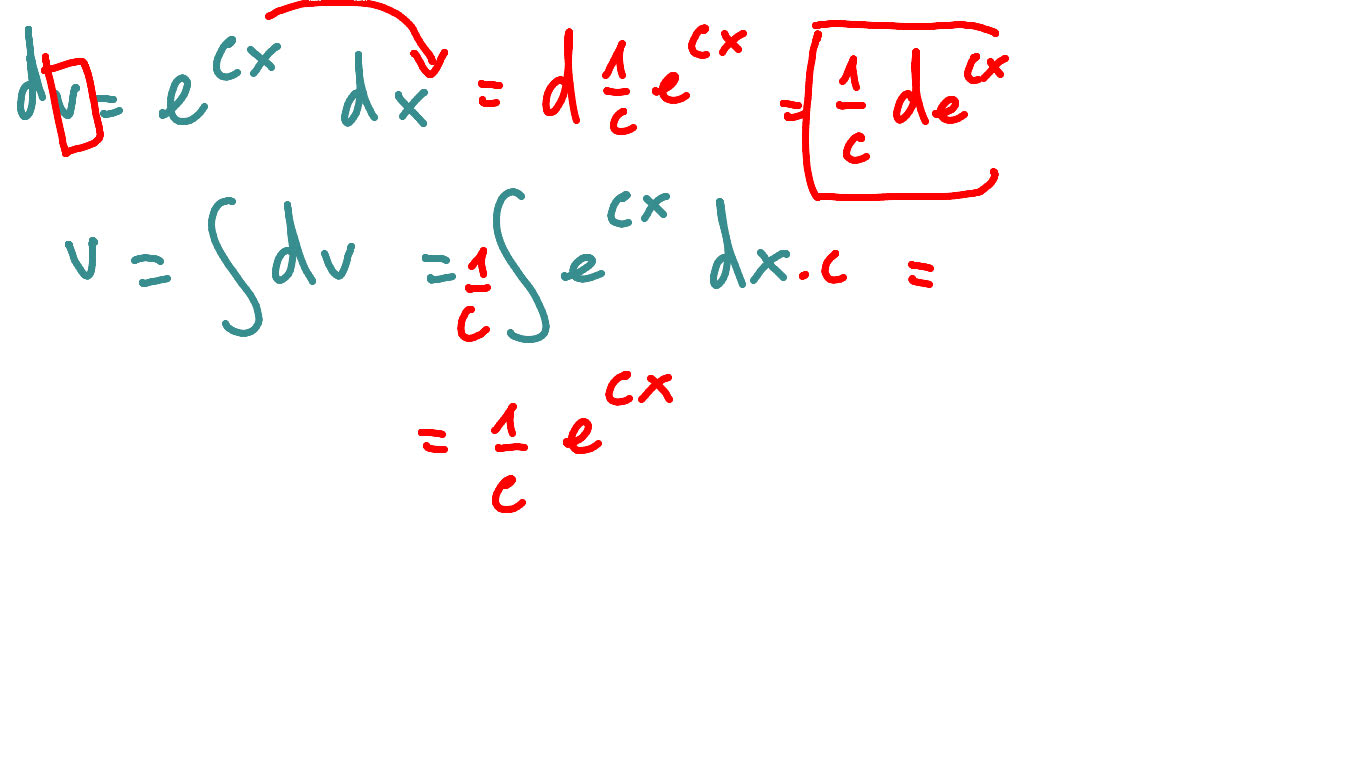 dv = e^{cx} dx = d \frac{1}{c} e^{cx} = \frac{1}{c} de^{cx}
v = ∫ dv = \frac{1}{c} ∫ e^{cx} dx · c =
= \frac{1}{c} e^{cx}